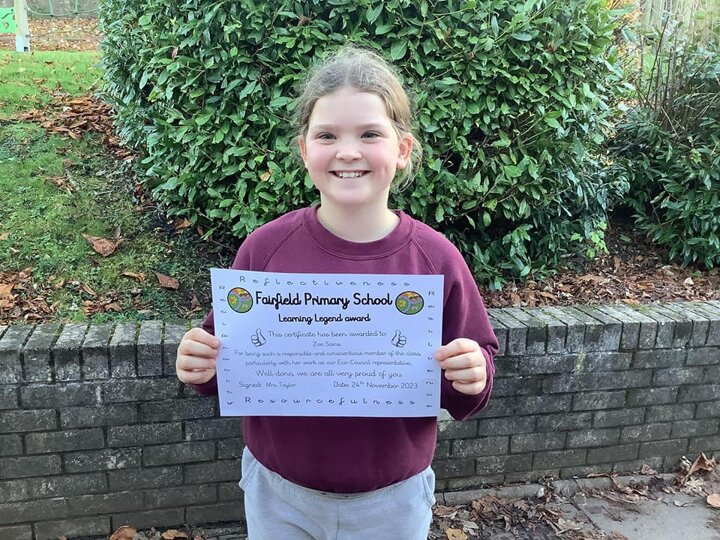 Reflectiveness
Fairfield Primary School
Learning Legend award
This certificate has been awarded to
Zoe Sams
For being such a responsible and conscientious member of the class,
particularly with her work as our Eco-Council representative.
Well done, we are all very proud of you.
Signed: Mrs Taylor Date: 24th November 2023
Resourcefulness